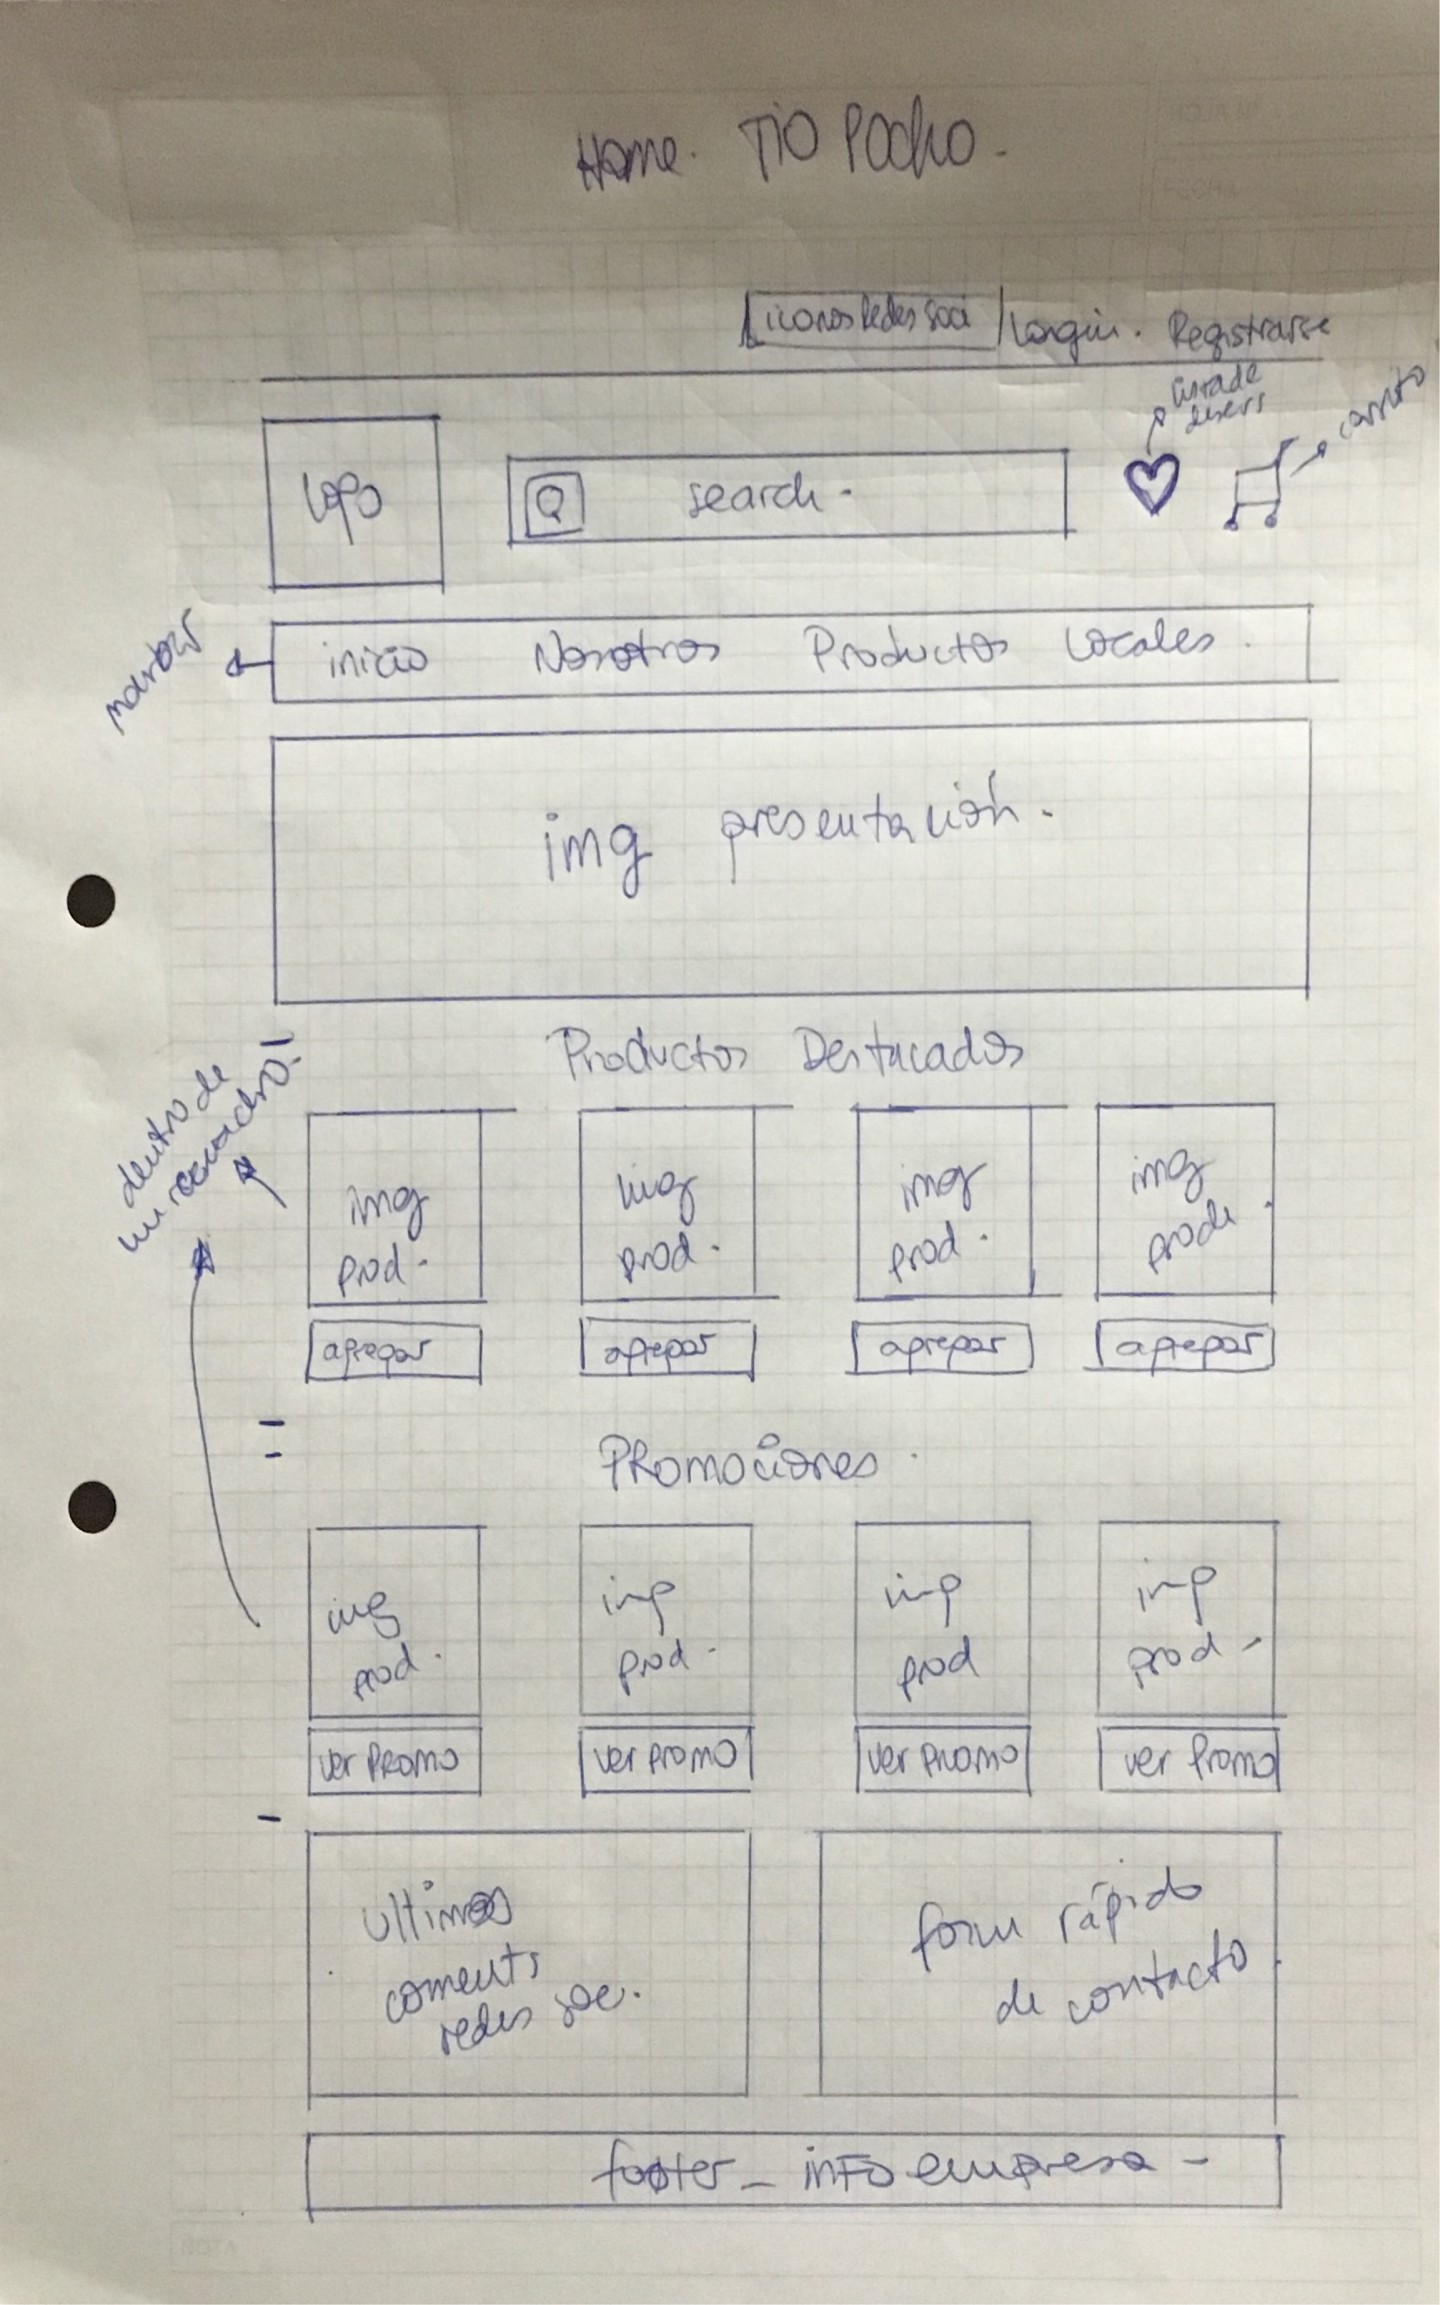 Home. TIO Pocho.
iconos Redes Soci / Longin. Registrarse
Lista de
deseos
carrito
Logo
search.
navbar
inicio Nosotros Productos Locales.
img presentación.
Productos Destacados
dentro de
un recuadro!
img
prod.
img
prod.
img
prod.
img
prod.
agregar
agregar
agregar
agregar
Promociones.
img
prod.
img
prod.
img
prod
img
prod.
ver Promo
ver promo
ver promo
ver Promo
ultimos
coments
redes soc.
form rápido
de contacto
footer - info empresa -
NOTA